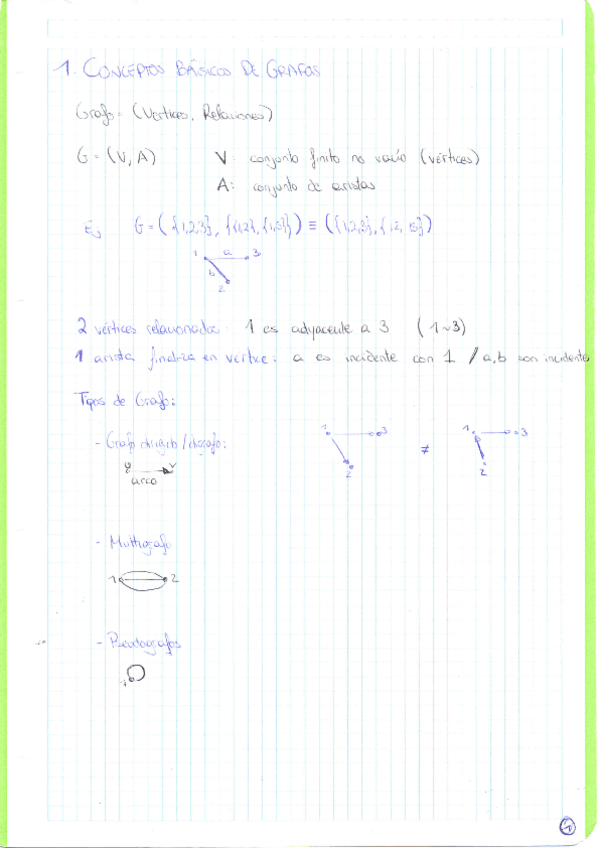 1. CONCEPTOS BÁSICOS DE GRAFOS
Grafo = (Vértices, Relaciones)
G = (V, A) V: conjunto finito no vacío (vértices)
A: conjunto de aristas
Ej G = ({1,2,3}, {{1,2}, {1,3}}) ≡ ({1,2,3}, {12, 13})
1 a 3
b
2
2 vértices relacionados: 1 es adyacente a 3 (1~3)
1 arista finaliza en vértice: a es incidente con 1 / a,b son incidentes
Tipos de Grafo:
- Grafo dirigido / digrafo:
1 3 ≠ 1 3
2 2
arco
- Multigrafo
1 2
- Pseudografos
1